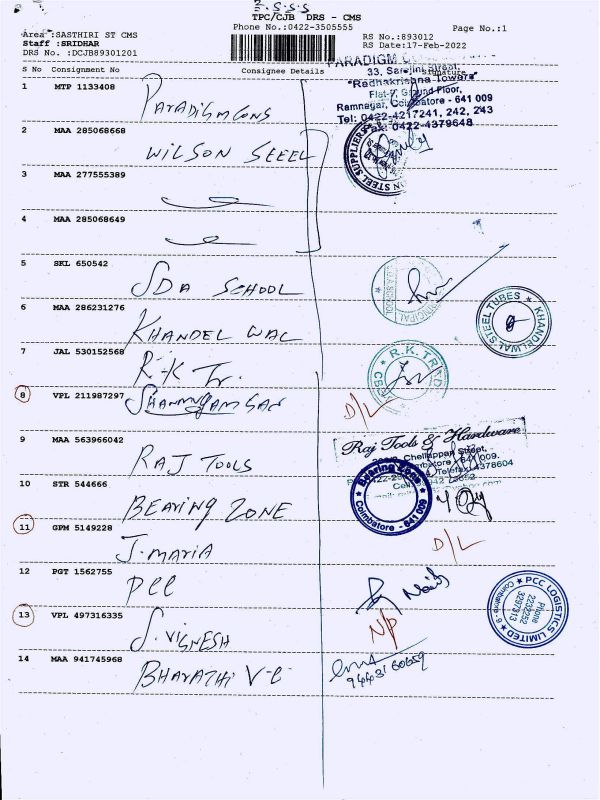 2.S.S.S
TPC/CJB DRS - CMS
Phone No.:0422-3505555
Page No.:1
Area :SASTHIRI ST CMS
Staff :SRIDHAR
DRS No. :DCJB89301201
RS No.:893012
RS Date:17-Feb-2022
S No Consignment No Consignee Details Signature
PARADIGM
33, Sarojini Street,
"Radhakrishna Towers"
Flat-7, Ground Floor,
Ramnagar, Coimbatore - 641 009
Tel: 0422-4217241, 242, 243
Fax: 0422-4379648
1 MTP 1133408 Paradigm Cons
2 MAA 285068668 WILSON STEEL
STEEL SUPPLIERS
3 MAA 277555389
4 MAA 285068649
5 SKL 650542 SDA SCHOOL
PRINCIPAL
S.D.A SCHOOL
6 MAA 286231276 KHANDEL WAL
KHANDELWAL STEEL TUBES
7 JAL 530152568 R.K Tr.
R.K. TRAD
CBE
8 VPL 211987297 Shanmugam San D/L
9 MAA 563966042 RAJ TOOLS
Raj Tools & Hardware
Chellappan Street,
Coimbatore - 641 009.
Telefax: 4378604
10 STR 544666 BEARING ZONE
Bearing Zone
Coimbatore - 641 009
11 GPM 5149228 J. MARIA D/L
12 PGT 1562755 PCC
PCC LOGISTICS LIMITED
Coimbatore - 9
Phone
2232252
3297313
13 VPL 497316335 S. VIGNESH N/P
14 MAA 941745968 BHARATHI V-C
9443160659